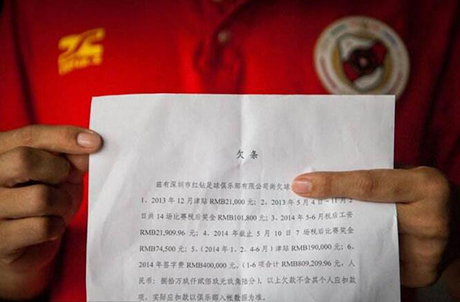 欠条
兹有深圳市红钻足球俱乐部有限公司尚欠球
1、2013年12月津贴RMB21,000元；2、2013年5月4日-11月2
日共14场比赛税后奖金RMB101,800元；3、2014年5-6月税后工资
RMB21,909.96元；4、2014年截止5月10日7场税后比赛奖金
RMB74,500元；5、(2014年1、2、4-6月)RMB190,000元；6、
2014年签字费RMB400,000元。(1-6项合计RMB809,209.96元，人
民币：捌拾万玖仟贰佰玖元玖角陆分)，以上欠款不含其个人应扣款
项，实际应扣款以俱乐部入帐数据为准。